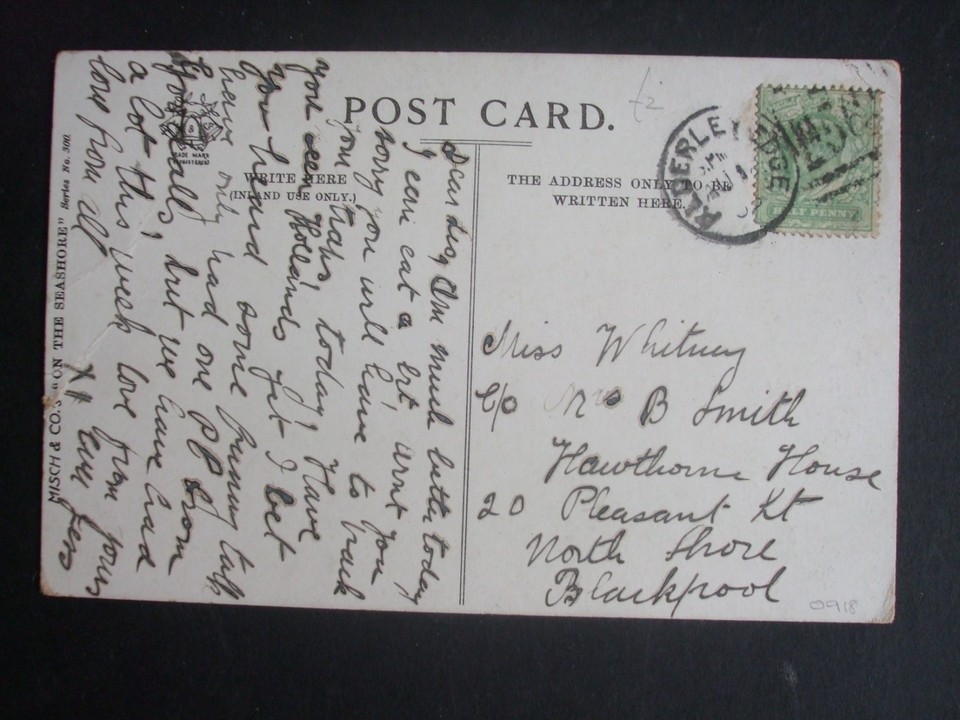 POST CARD.
WRITE HERE
(INLAND USE ONLY.)
THE ADDRESS ONLY TO BE
WRITTEN HERE.
TRADE MARK
REGISTERED
MISCH & CO.'S "ON THE SEASHORE" Series No. 309.
ALDERLEY EDGE
HALF PENNY
Dear Am much better today
I can eat a bit, arnt you
sorry you will have to track
you today! Have
you seen Hollands yet I bet
you heard some funny talk
have only had one PP from
you all, but we have had
a lot this week love from yours
love from all
Miss Whitney
C/o Mrs B Smith
Hawthorne House
20 Pleasant St
North Shore
Blackpool
0918
£2